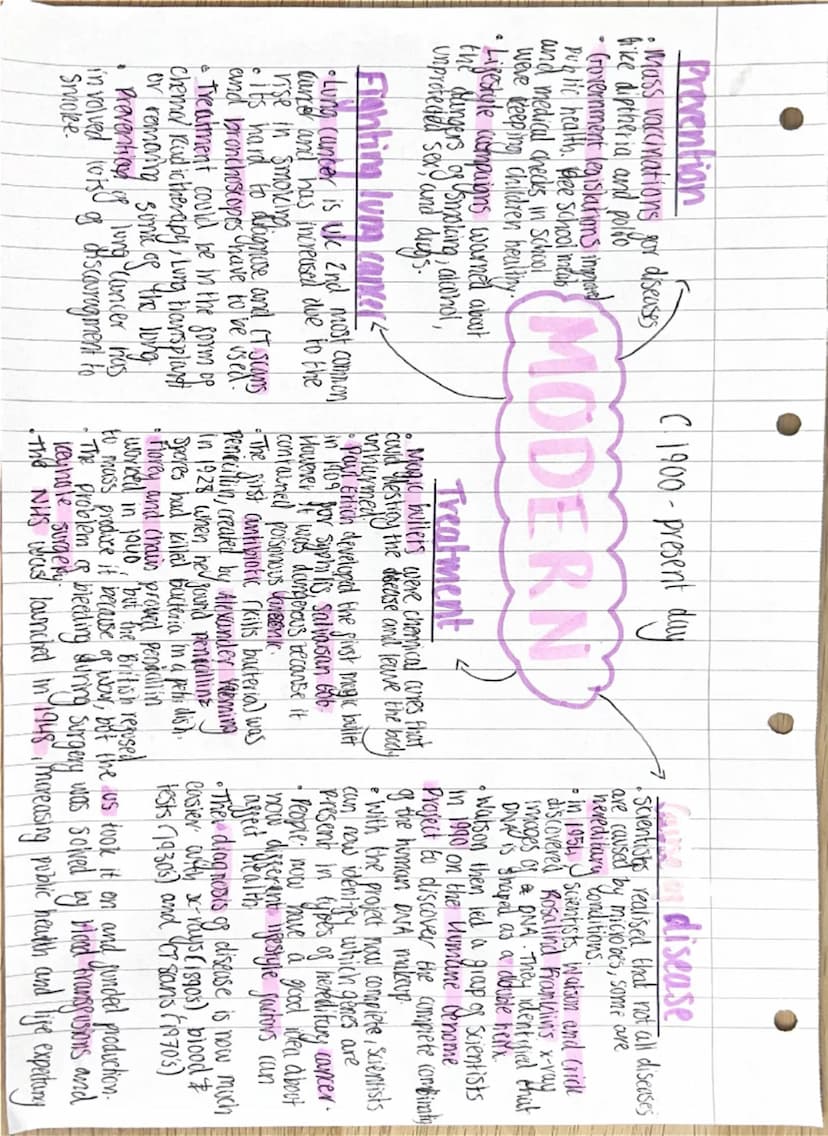 C 1900 - present day
MODERN
Prevention
• Mass vaccinations for diseases
like diptheria and polio
• Government legislations improved
public health. Free school meals
and medical checks in school
were keeping children healthy.
• Lifestyle campaigns warned about
the dangers of smoking, alcohol,
unprotected sex, and drugs.
Fighting lung cancer
• Lung cancer is UK 2nd most common
cancer and has increased due to the
rise in smoking
• Its hard to diagnose and CT scans
and bronchoscopes have to be used.
• Treatment could be in the form of
chemo/radiotherapy, lung transplant
or removing some of the lung.
• prevention of lung cancer has
involved lots of discouragment to
smoke.
Treatment
• Magic bullets were chemical cures that
could destroy the disease and leave the body
unharmed.
• Paul Erhlich developed the first magic bullet
in 1909 for syphilis, salvarsan 606.
However it was dangerous because it
contained poisonous
• The first antibiotic (kills bacteria) was
penicillin, created by Alexander Fleming
in 1928 when he found
spores had killed bacteria in a petri dish.
• Florey and chain proved penicillin
worked in 1940, but the British refused
to mass produce it because of war, but the US took it on and funded production.
• The problem of bleeding during surgery was solved by blood transfusions and
keyhole surgery.
• The NHS was launched in 1948, increasing public health and life expectany
disease
• scientists realised that not all diseases
are caused by microbes, some are
hereditary conditions.
• in 1954, scientists Watson and crick
discovered Rosalind Franklin's x-ray
images of DNA. They identified that
DNA is shaped as a double helix.
• Watson then led a group of scientists
in 1990 on the Humune Genome
Project to discover the complete
of the human DNA makeup
• with the project now complete, scientists
can now identify which genes are
present in types of hereditary cancer.
• People now have a good idea about
how different lifestyle factors can
affect health
• The diagnosis of disease is now much
easier with x-rays (1890s) blood &
tests (1930s) and CT scans (1970's)